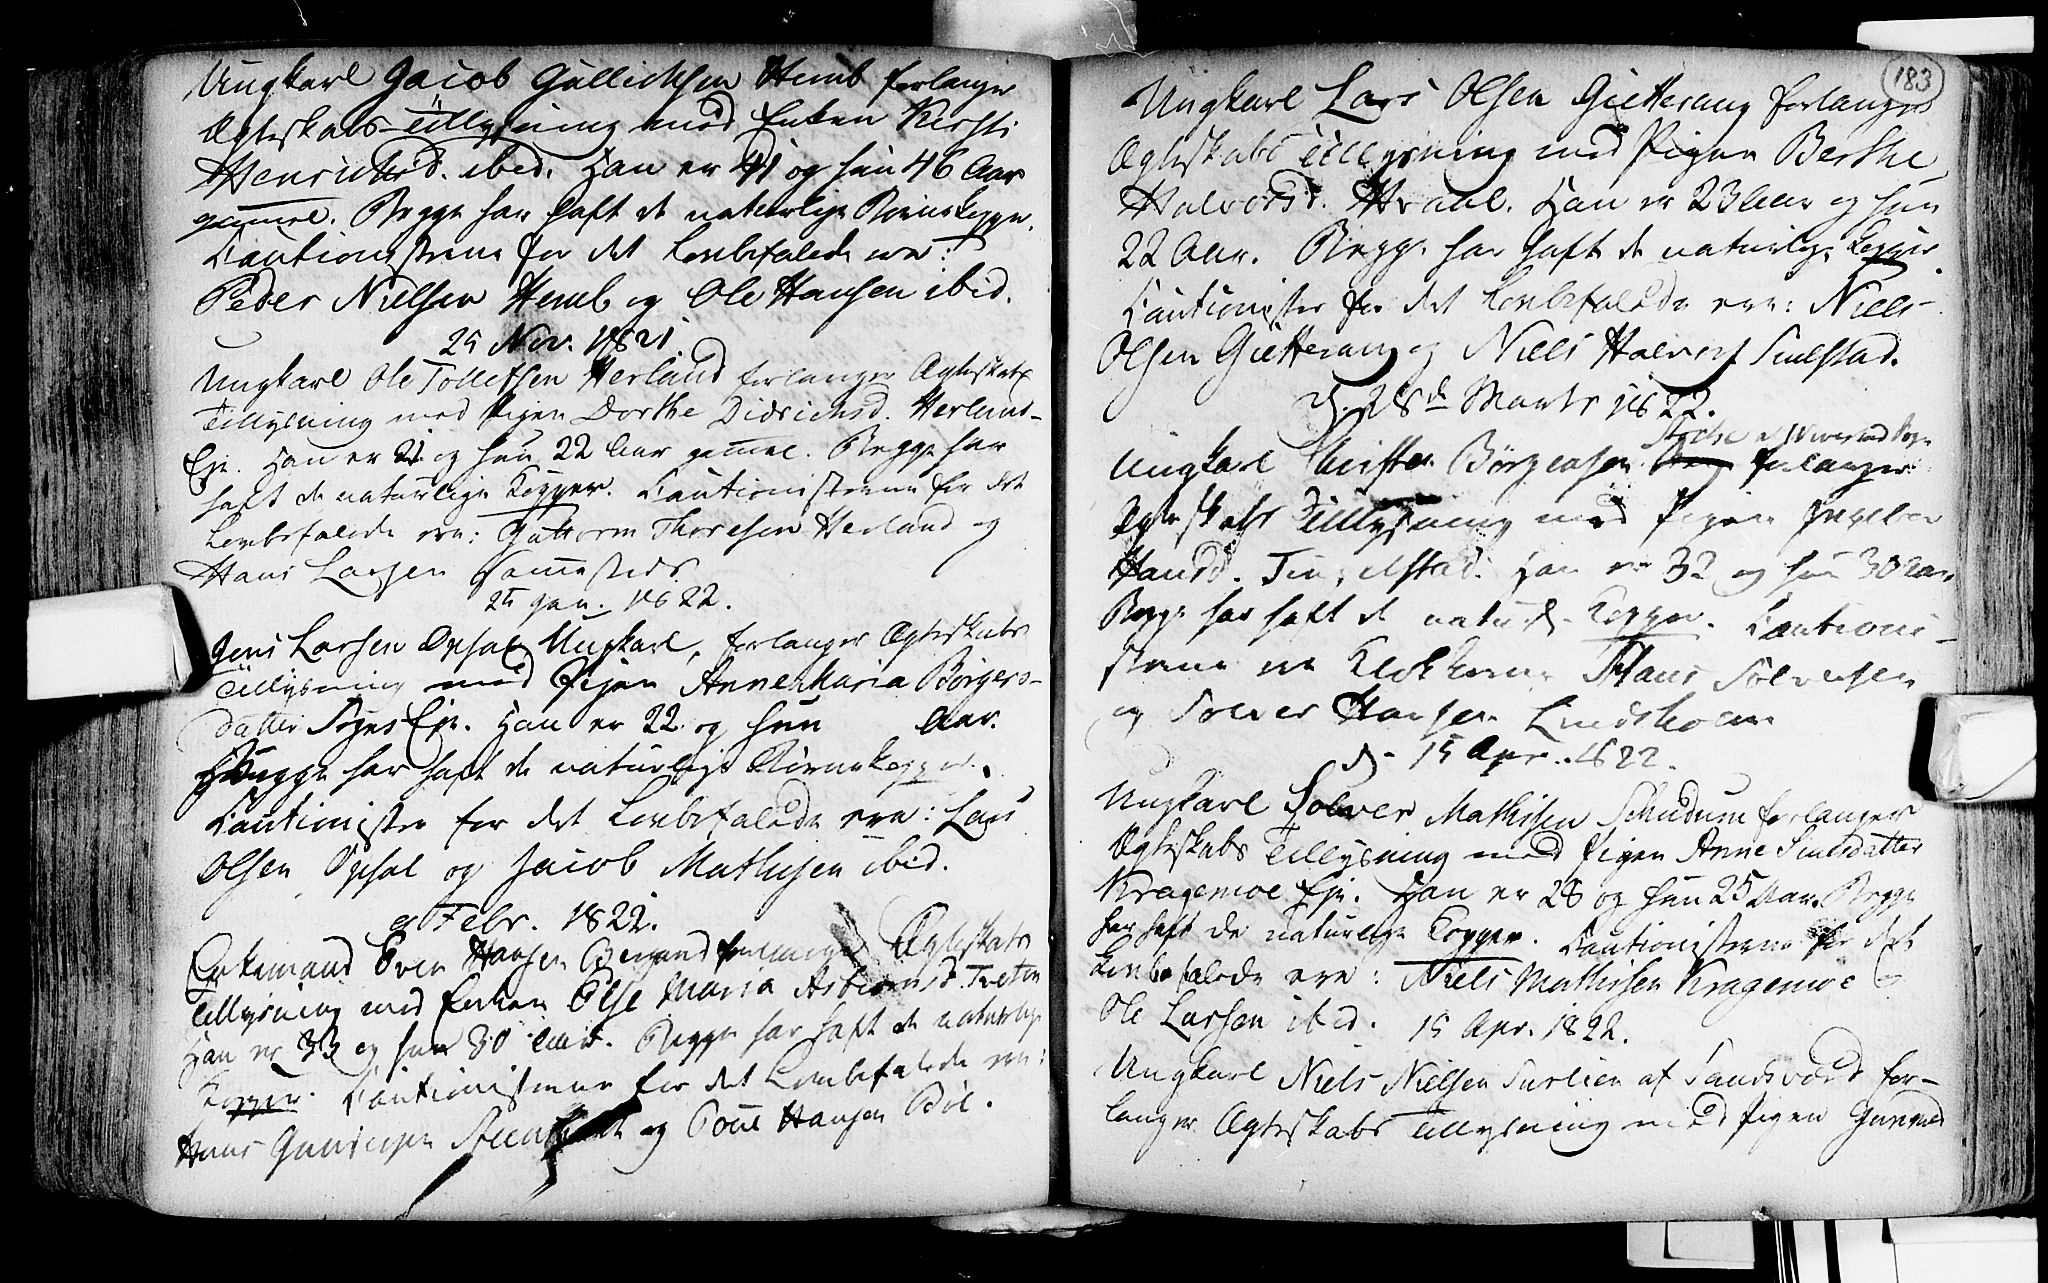 Ungkarl Jacob Gullichsen Hemb forlanger
Ægteskabs-Tillysning med Enken Kirsti
Henrichsd. ibid. Han er 41 og hun 46 Aar
gamml. Begge har haft de naturlige Børnekopper.
Cautionisterne for det Lovbefalede ere:
Peder Nielsen Hemb og Ole Hansen ibid.
25 Nov. 1821.
Ungkarl Ole Tollefsen Herland forlanger Ægteskabs
Tillysning med Pigen Dorthe Didrichsd. Herlands-
Eje. Han er 21 og hun 22 Aar gamml. Begge har
haft de naturlige Kopper. Cautionisterne for det
Lovbefalede ere: Guttorm Thoresen Herland og
Hans Larsen sammesteds.
25 Jan. 1822.
Jens Larsen Opsal Ungkarl, forlanger Ægteskabs
Tillysning med Pigen Anne Maria Børgers-
datter Eje. Han er 22 og hun Aar.
Begge har haft de naturlige Børnekopper.
Cautionister for det Lovbefalede ere: Lars
Olsen Opsal og Jacob Mathisen ibid.
9 Febr. 1822.
Enkemand Even Hansen forlanger Ægteskabs
Tillysning med Enken Else Maria Asbiørnsd.
Han er 33 og hun 30 Aar. Begge har haft de naturlige
Kopper. Cautionisterne for det Lovbefalede ere:
Hans og Poul Hansen Böl.
183
Ungkarl Lars Olsen Gietterang forlanger
Ægteskabs Tillysning med Pigen Berthe
Halvorsd. Hvaal. Han er 23 Aar og hun
22 Aar. Begge har haft de naturlige Kopper.
Cautionister for det Lovbefalede ere: Niels
Olsen Gietterang og Niels Halvors
d. 28de Marts 1822.
Ungkarl Christen Börgersen forlanger
Ægteskabs Tillysning med Pigen Ingebor
Hansd. Tingelstad. Han er 32 og hun 30 Aar.
Begge har haft de naturl. Kopper. Cautioni-
sterne ere Klokkeren Hans Solversen
og Solver Hansen Lindsholm
d. 15 Apr. 1822.
Ungkarl Solver Mathisen forlanger
Ægteskabs Tillysning med Pigen Anne Simesdatter
Kragemoe Eje. Han er 28 og hun 25 Aar. Begge
har haft de naturlige Kopper. Cautionisterne for det
Lovbefalede ere: Niels Mathisen Kragemoe og
Ole Larsen ibid. 15 Apr. 1822.
Ungkarl Niels Nielsen af Sandsværd for-
langer Ægteskabs Tillysning med Pigen